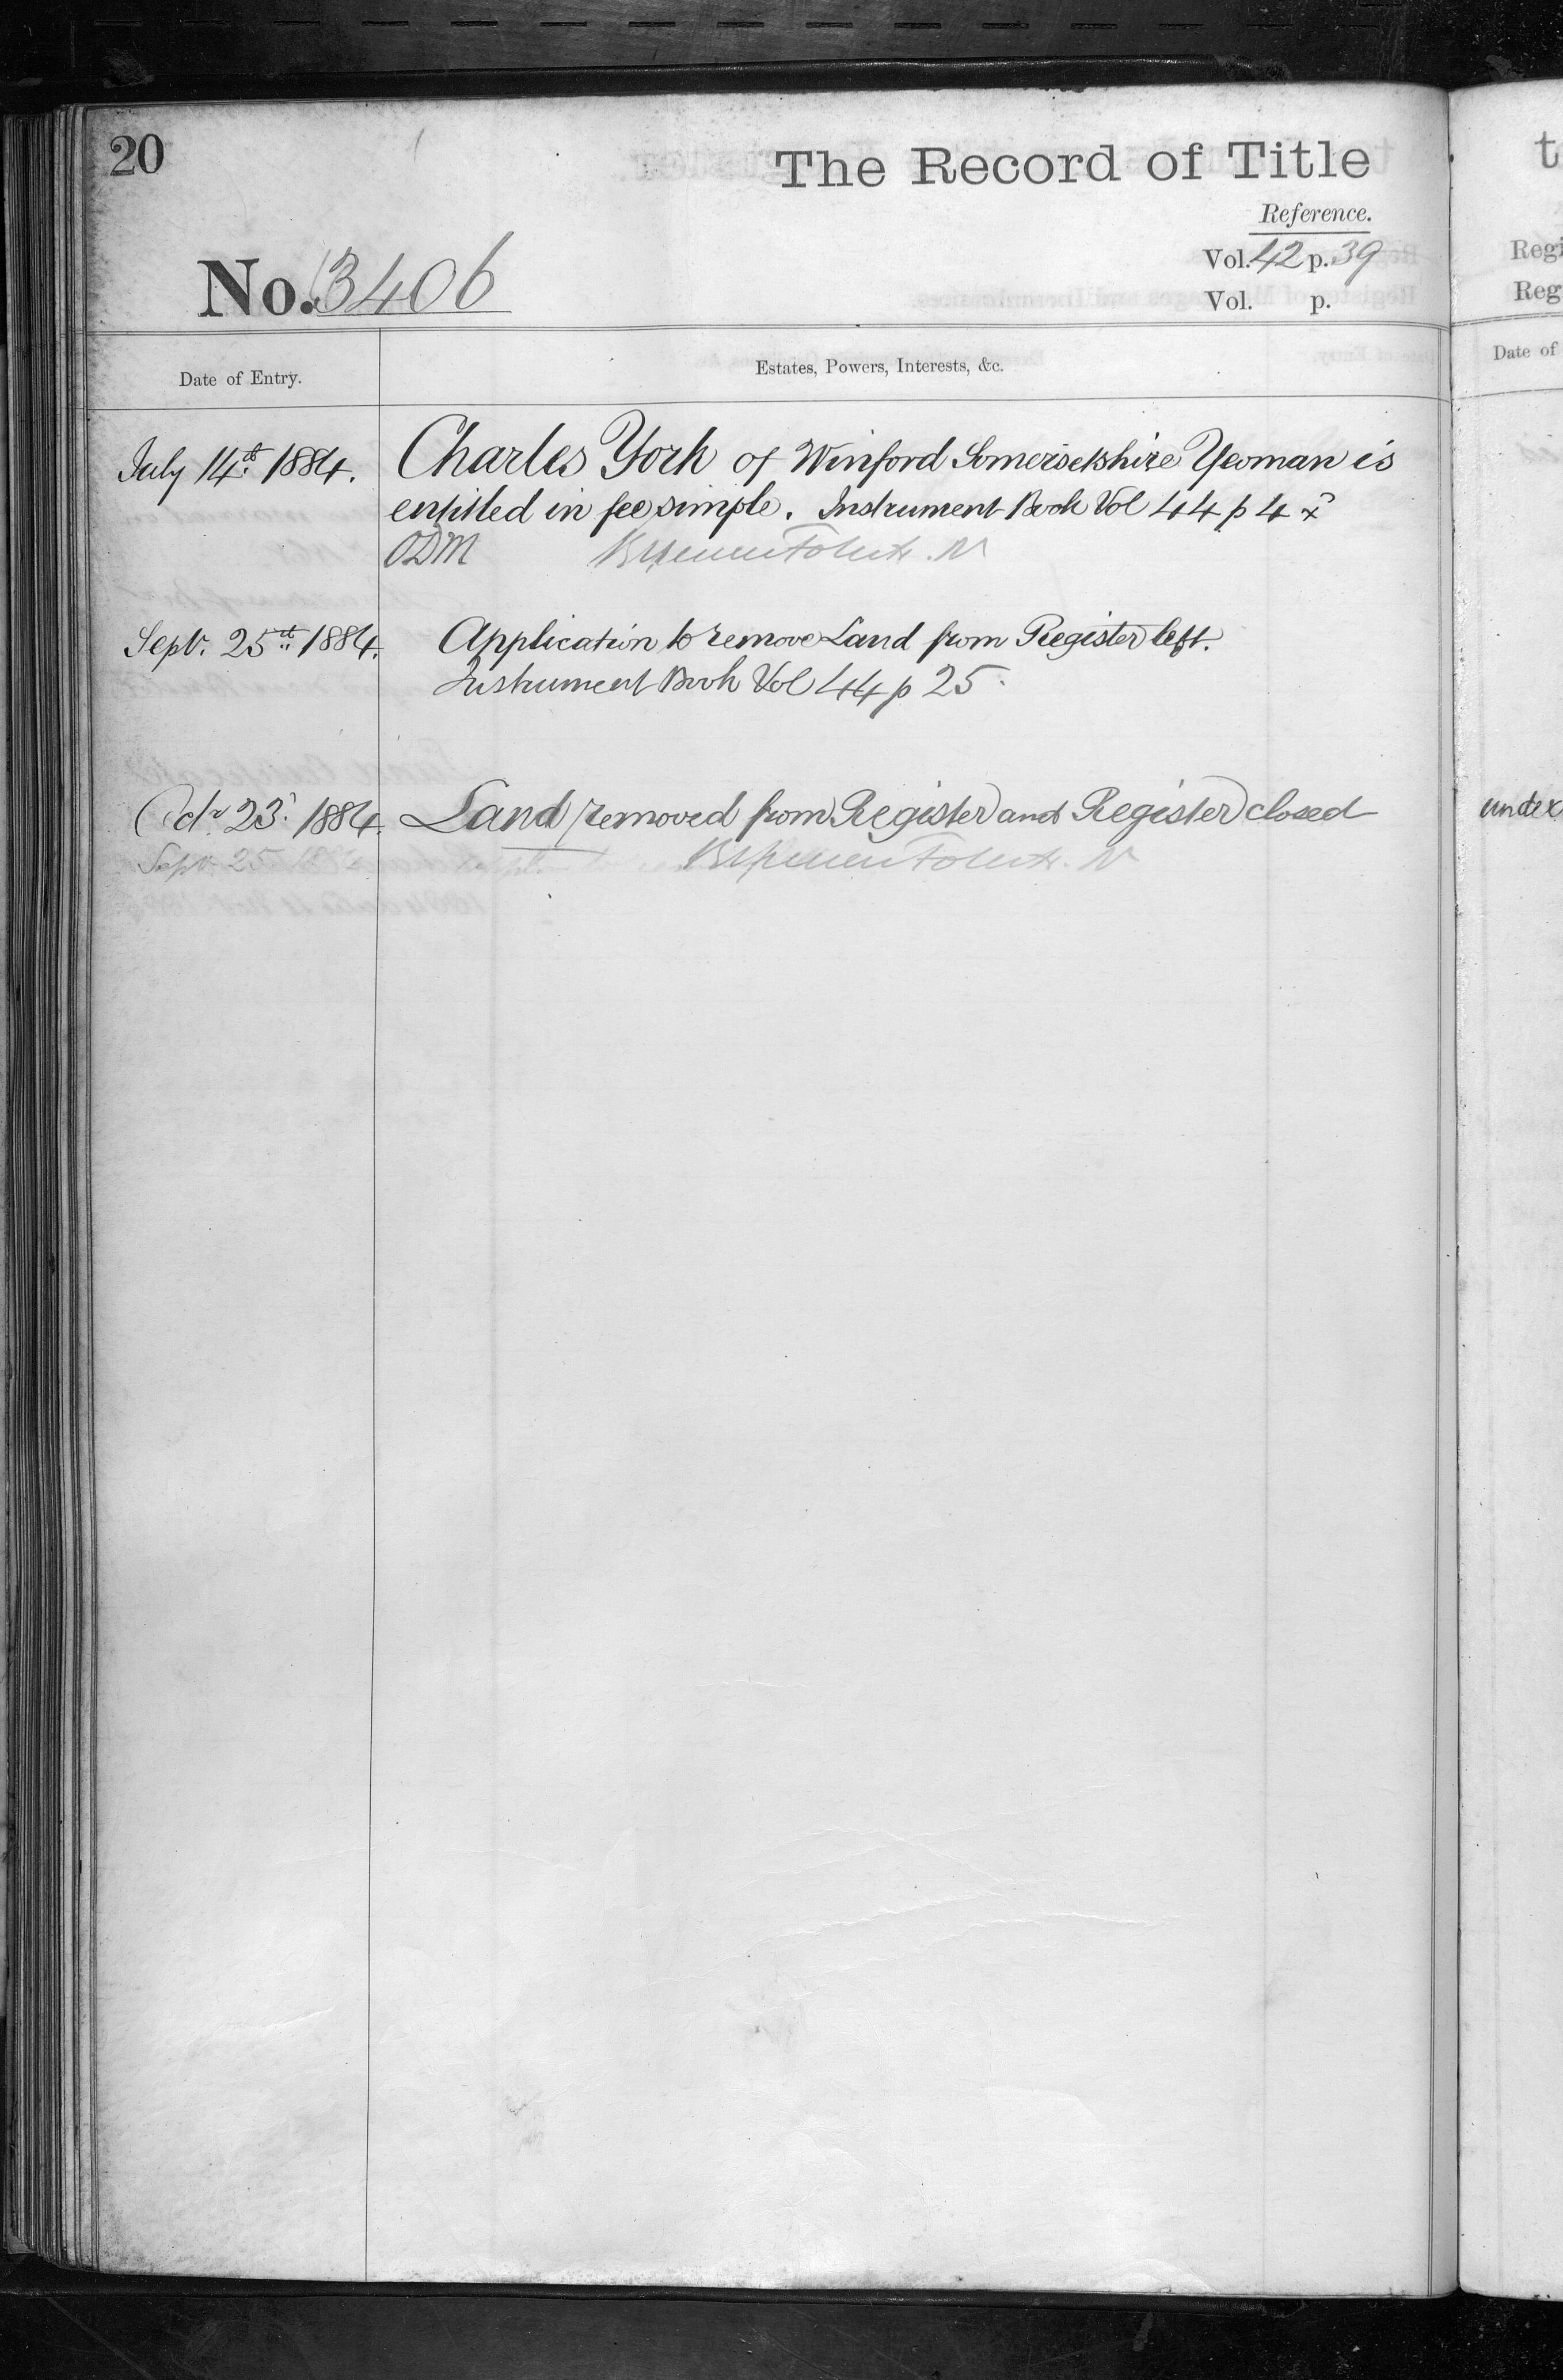 20
The Record of Title
Reference.
No. 3406
Vol. 42 p. 39
Vol. p.
Date of Entry.
Estates, Powers, Interests, &c.
July 14th 1884. Charles York of Winford Somersetshire Yeoman is
entitled in fee simple. Instrument Book Vol 44 p 4
ODM
Sept. 25th 1884. Application to remove Land from Register left.
Instrument Book Vol 44 p 25.
Octr 23 1884. Land removed from Register and Register closed
Sept 25 1884
t
Regi
Reg
Date of
under